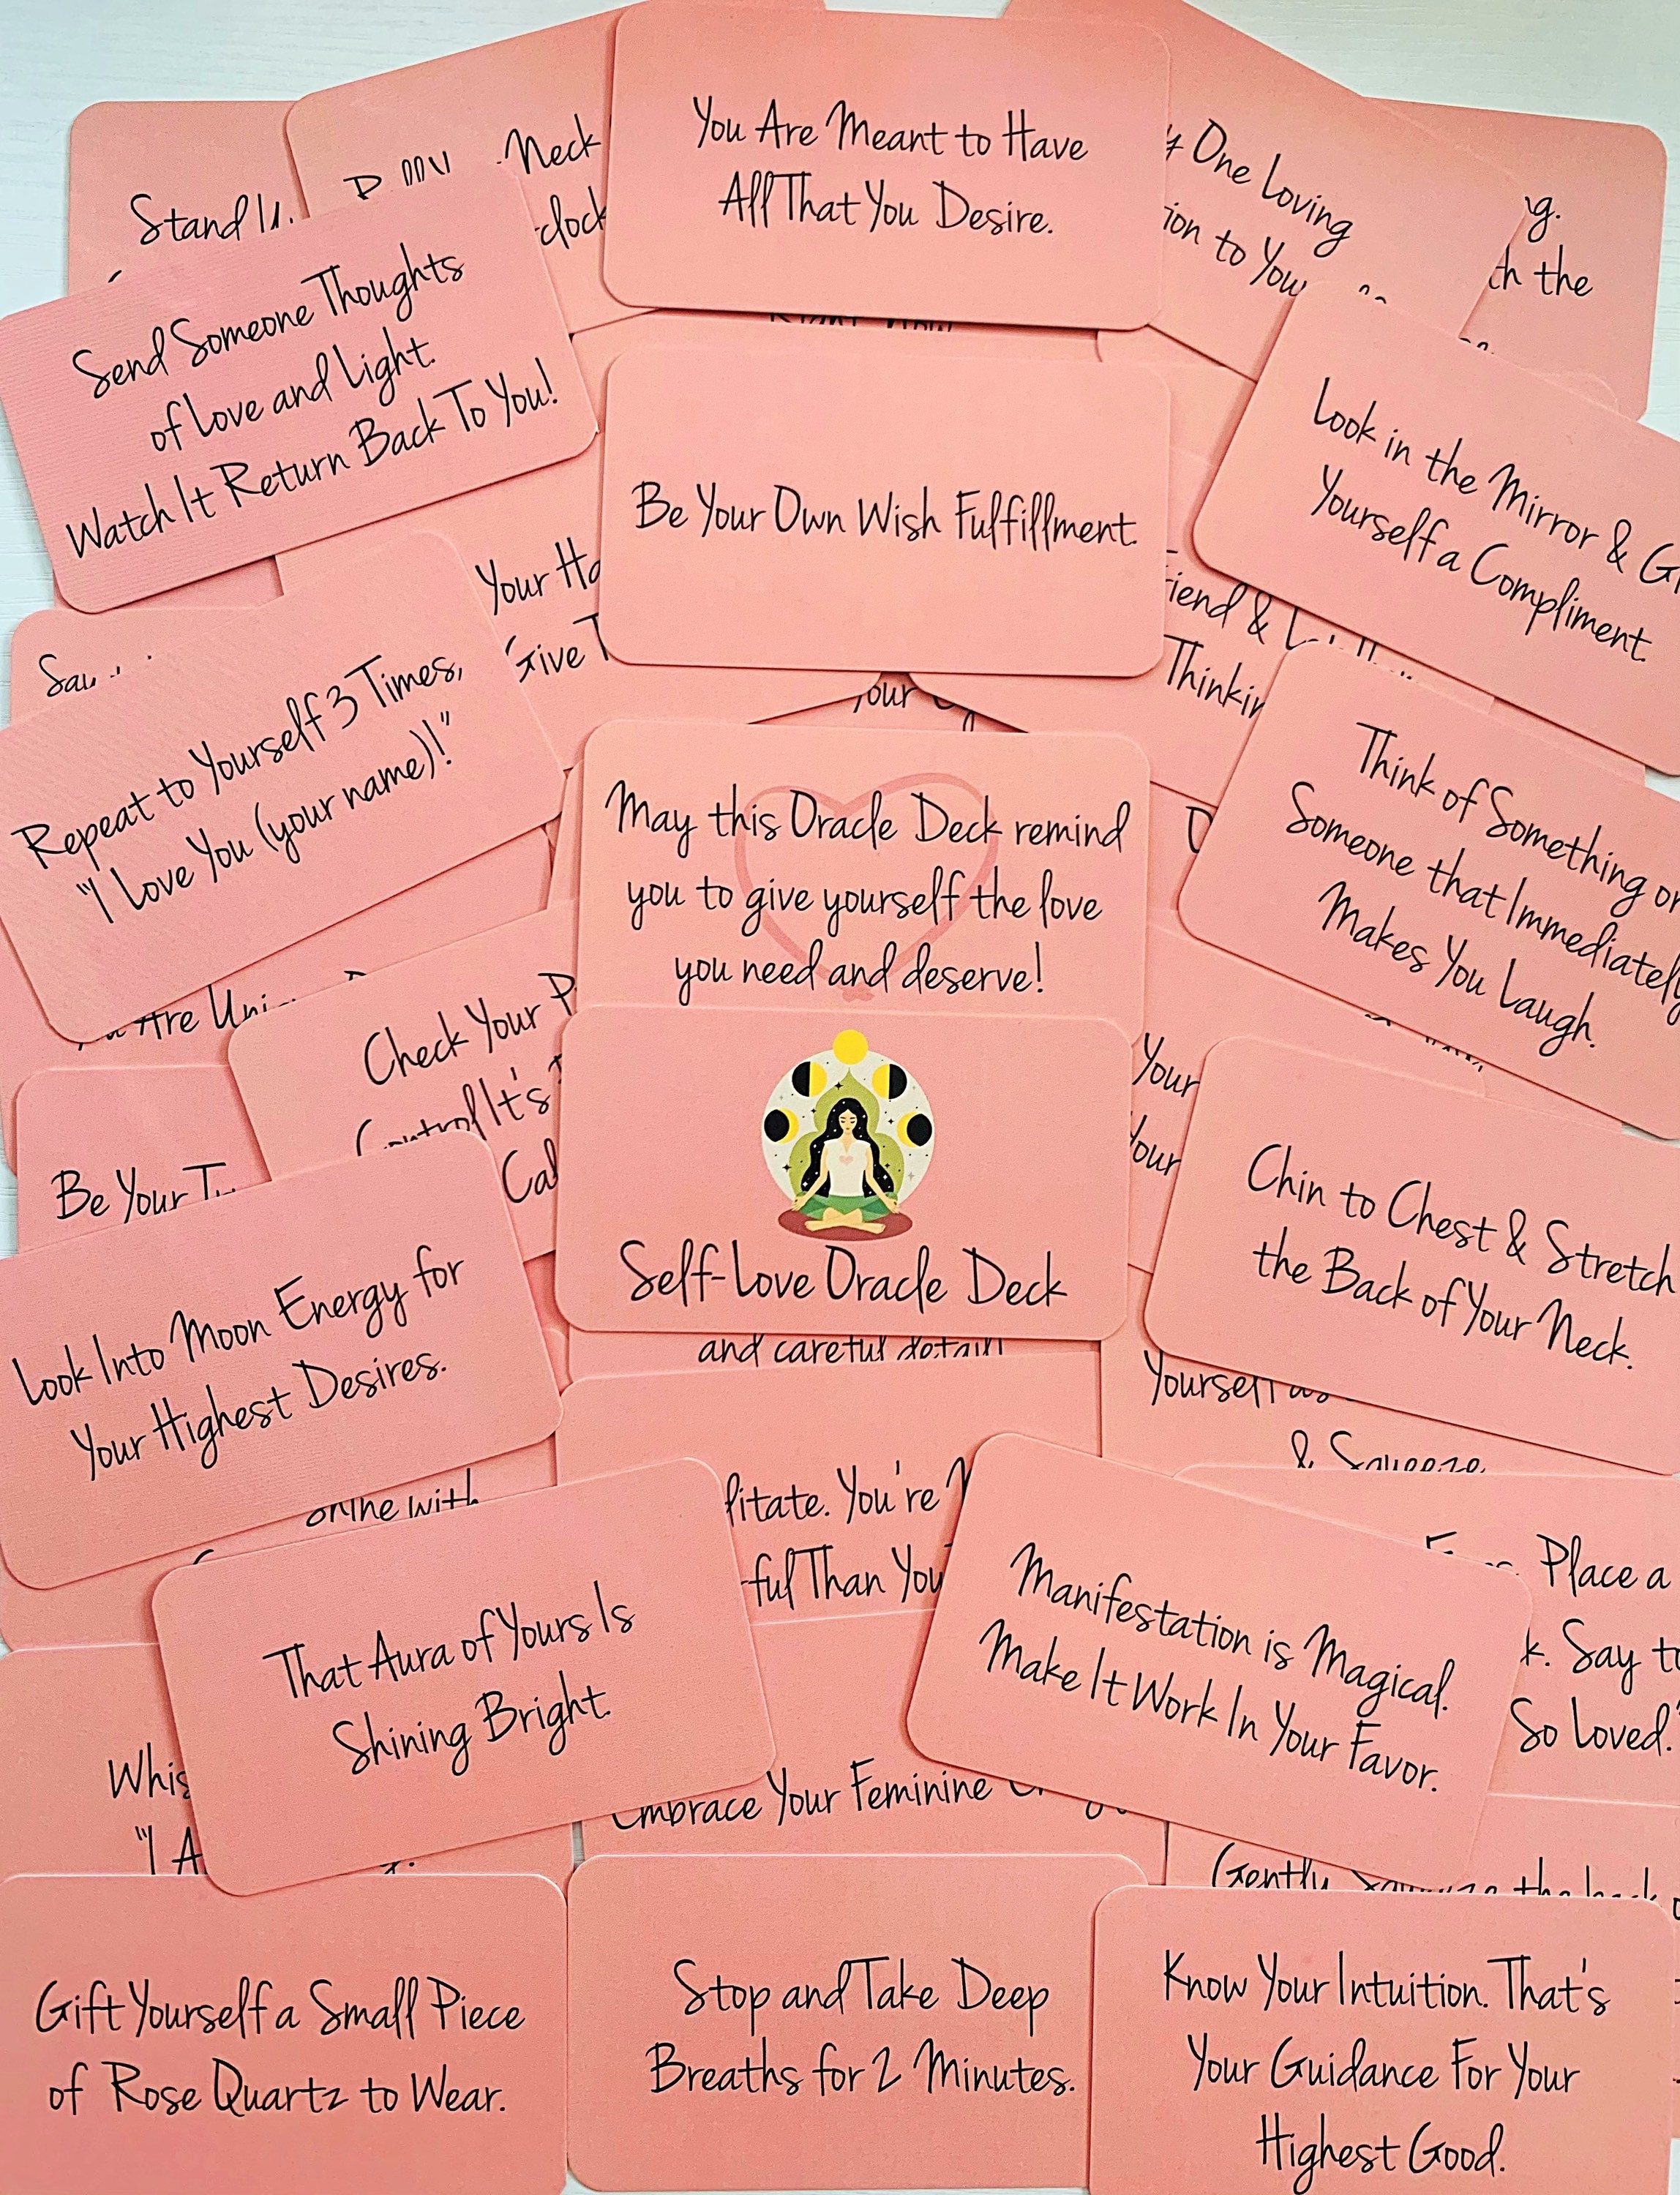 Stand
Neck
You Are Meant to Have
All That You Desire.
One Loving
to
the
Send Someone Thoughts
of Love and Light.
Watch It Return Back To You!
Be Your Own Wish Fulfillment.
Look in the Mirror &
Yourself a Compliment.
Your
Give
&
Your
Repeat to Yourself 3 Times,
"I Love You (your name)!"
May this Oracle Deck remind
you to give yourself the love
you need and deserve!
Think of Something or
Someone that Immediately
Makes You Laugh.
Are
Check Your
Control It's
Your
Your
Be Your
Self-Love Oracle Deck
and careful detail
Chin to Chest & Stretch
the Back of Your Neck.
Look Into Moon Energy for
Your Highest Desires.
Yourself
& Squeeze
Shine with
You're
Than You
That Aura of Yours Is
Shining Bright.
Manifestation is Magical.
Make It Work In Your Favor.
Place a
Say to
So Loved."
"I
Embrace Your Feminine
Gently Squeeze the back
Gift Yourself a Small Piece
of Rose Quartz to Wear.
Stop and Take Deep
Breaths for 2 Minutes.
Know Your Intuition. That's
Your Guidance For Your
Highest Good.